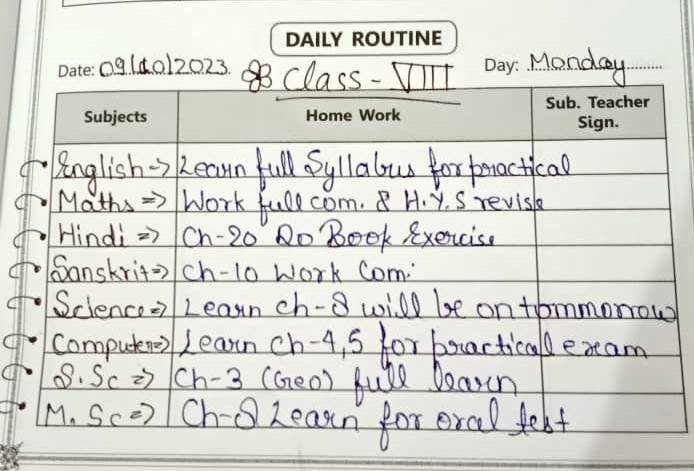 DAILY ROUTINE
Date: 09/10/2023. Class - VIII Day: Monday
Subjects Home Work Sub. Teacher Sign.
English => Learn full Syllabus for practical
Maths => Work full com. & H.Y.S revise
Hindi => Ch-20 Do Book Exercise
Sanskrit => Ch-10 Work Com.
Science => Learn ch-8 will be on tommorrow
Computer => Learn ch-4,5 for practical exam
S.Sc => Ch-3 (Geo) full learn
M.Sc => Ch-8 Learn for oral test